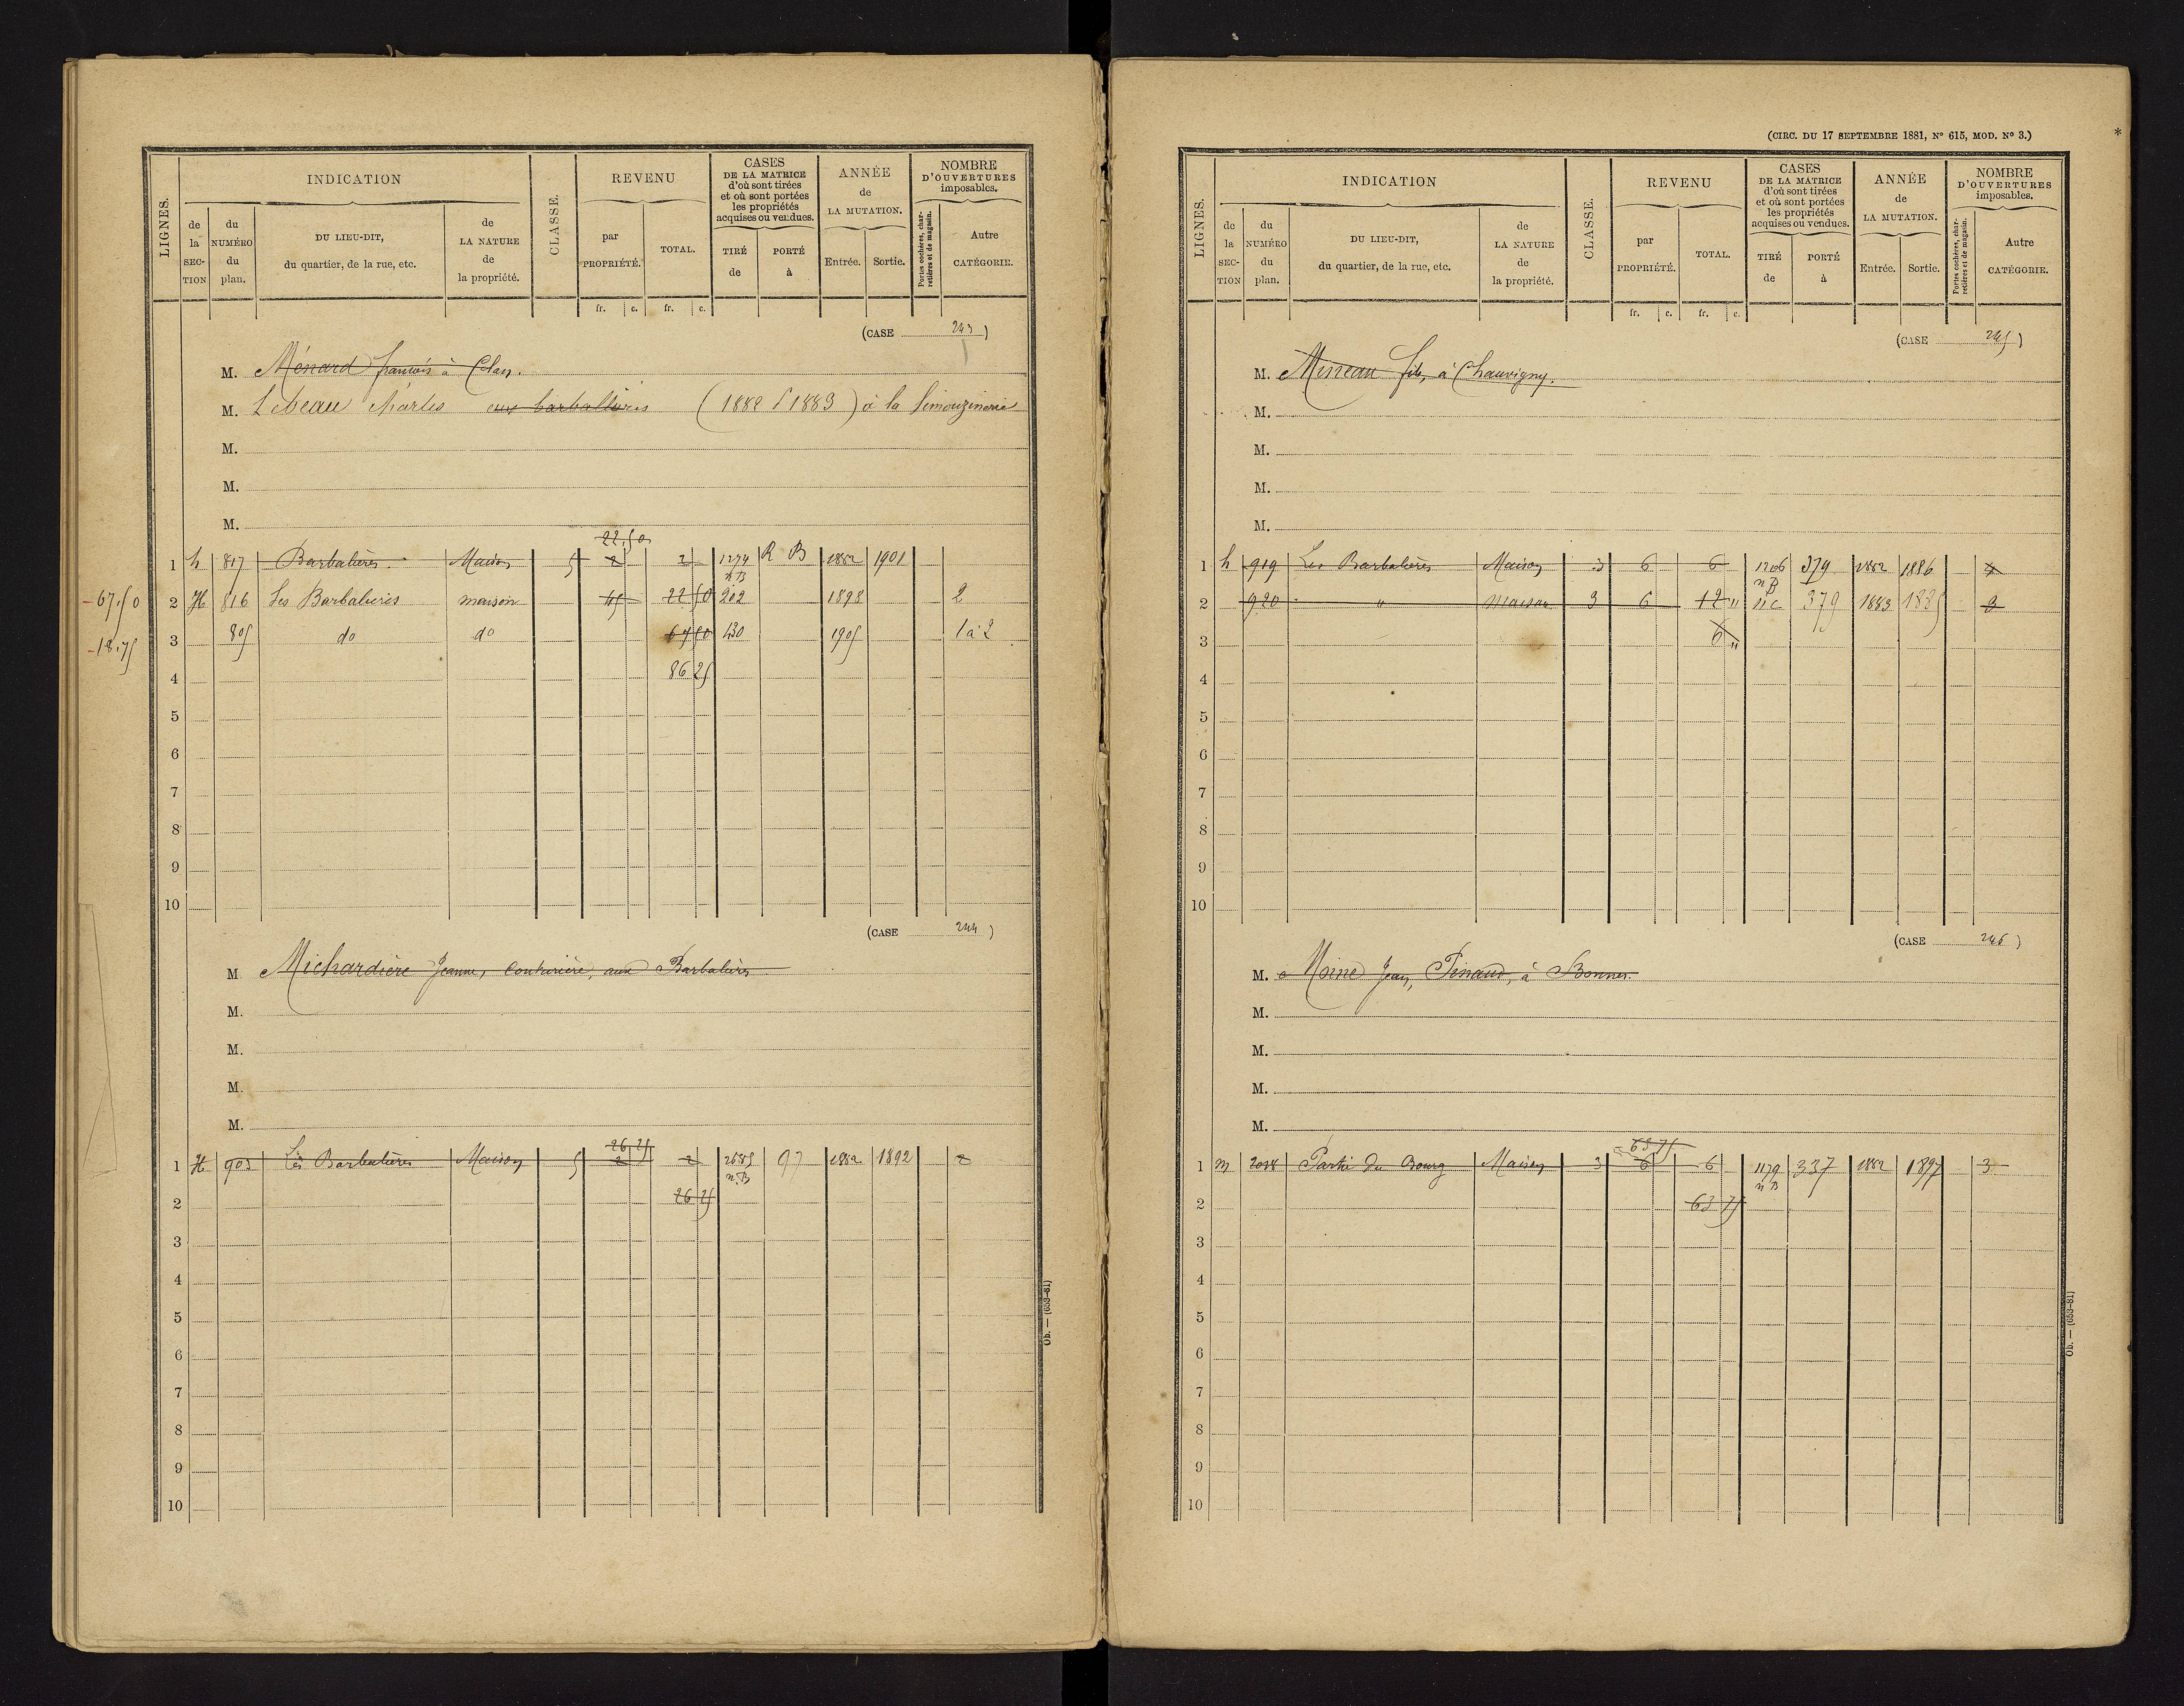 LIGNES.
INDICATION
de la SEC-TION
du NUMÉRO du plan.
DU LIEU-DIT, du quartier, de la rue, etc.
de LA NATURE de la propriété.
CLASSE.
REVENU
par PROPRIÉTÉ.
TOTAL.
CASES DE LA MATRICE d'où sont tirées et où sont portées les propriétés acquises ou vendues.
TIRÉ de
PORTÉ à
ANNÉE de LA MUTATION.
Entrée. Sortie.
NOMBRE D'OUVERTURES imposables.
Portes cochères, charretières et de magasin.
Autre CATÉGORIE.
fr. c. fr. c.
(CASE 243)
M. Ménard françois à Clan.
M. Lebeau Charles aux barbalieres (1882 P 1883) à la Limouzinerie
M.
M.
M.
22.50
1 h 817 Barbalières Maison 5 2 2 1274 R B 1882 1901
n.B
-67.50 2 H 816 Les Barbalieres maison 45 22 50 202 1898 2
-18.75 3 805 do do 67 50 430 1905 1 à 2
4 86 25
5
6
7
8
9
10
(CASE 244)
M Michardière Jeanne, Couturière, aux Barbalières
M.
M.
M.
M.
26 25
1 H 903 Les Barbalières Maison 5 2 2 97 1882 1892 2
n.B
2 26 25
3
4
5
6
7
8
9
10
Ob. — (653-81)
(CIRC. DU 17 SEPTEMBRE 1881, No 615, MOD. No 3.)
*
LIGNES.
INDICATION
de la SEC-TION
du NUMÉRO du plan.
DU LIEU-DIT, du quartier, de la rue, etc.
de LA NATURE de la propriété.
CLASSE.
REVENU
par PROPRIÉTÉ.
TOTAL.
CASES DE LA MATRICE d'où sont tirées et où sont portées les propriétés acquises ou vendues.
TIRÉ de
PORTÉ à
ANNÉE de LA MUTATION.
Entrée. Sortie.
NOMBRE D'OUVERTURES imposables.
Portes cochères, charretières et de magasin.
Autre CATÉGORIE.
fr. c. fr. c.
(CASE 245)
M. Mineau fils, à Chauvigny.
M.
M.
M.
M.
1 h 919 Les Barbalières Maison 3 6 6 1206 379 1882 1886
n B
2 920 " maison 3 6 12 " nc 379 1883 1885 3
3 6 "
4
5
6
7
8
9
10
(CASE 246)
M. Moine Jean, Pinaud, à Bonnes.
M.
M.
M.
M.
63 75
1 m 2018 Partie du Bourg Maison 3 6 6 1179 337 1882 1897 3
n B
2 63 75
3
4
5
6
7
8
9
10
Ob. — (653-81)